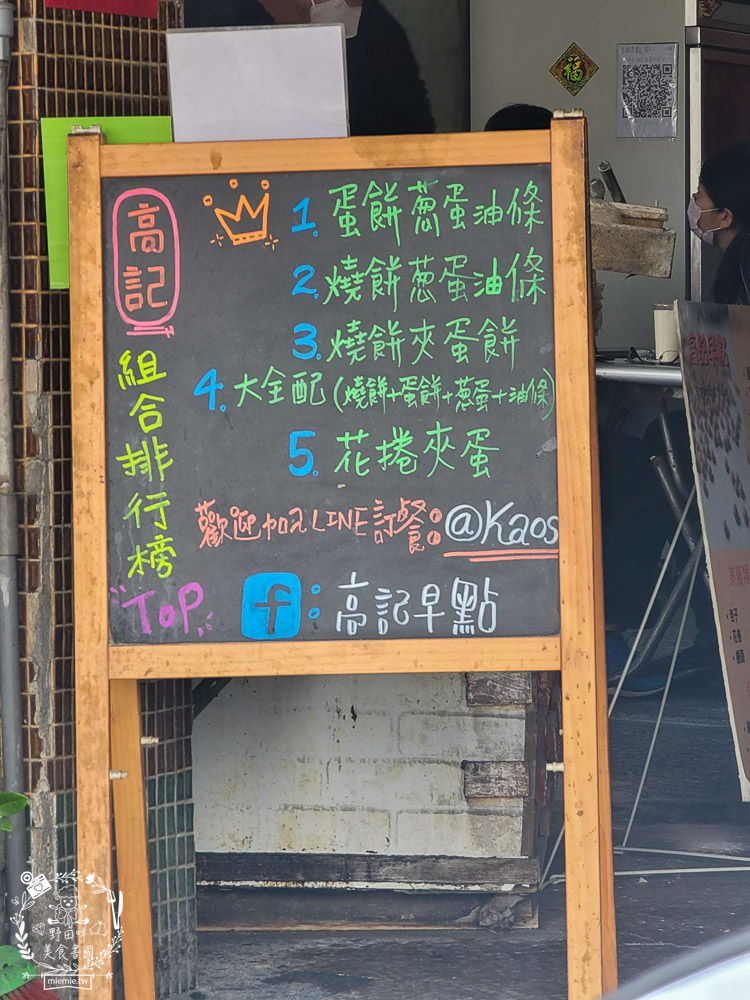 福
高記
組合排行榜
TOP
1. 蛋餅蔥蛋油條
2. 燒餅蔥蛋油條
3. 燒餅夾蛋餅
4. 大全配(燒餅+蛋餅+蔥蛋+油條)
5. 花捲夾蛋
歡迎加入LINE訂餐:@Kaos
f:高記早點
野田咩
美食書國
miemie.tw